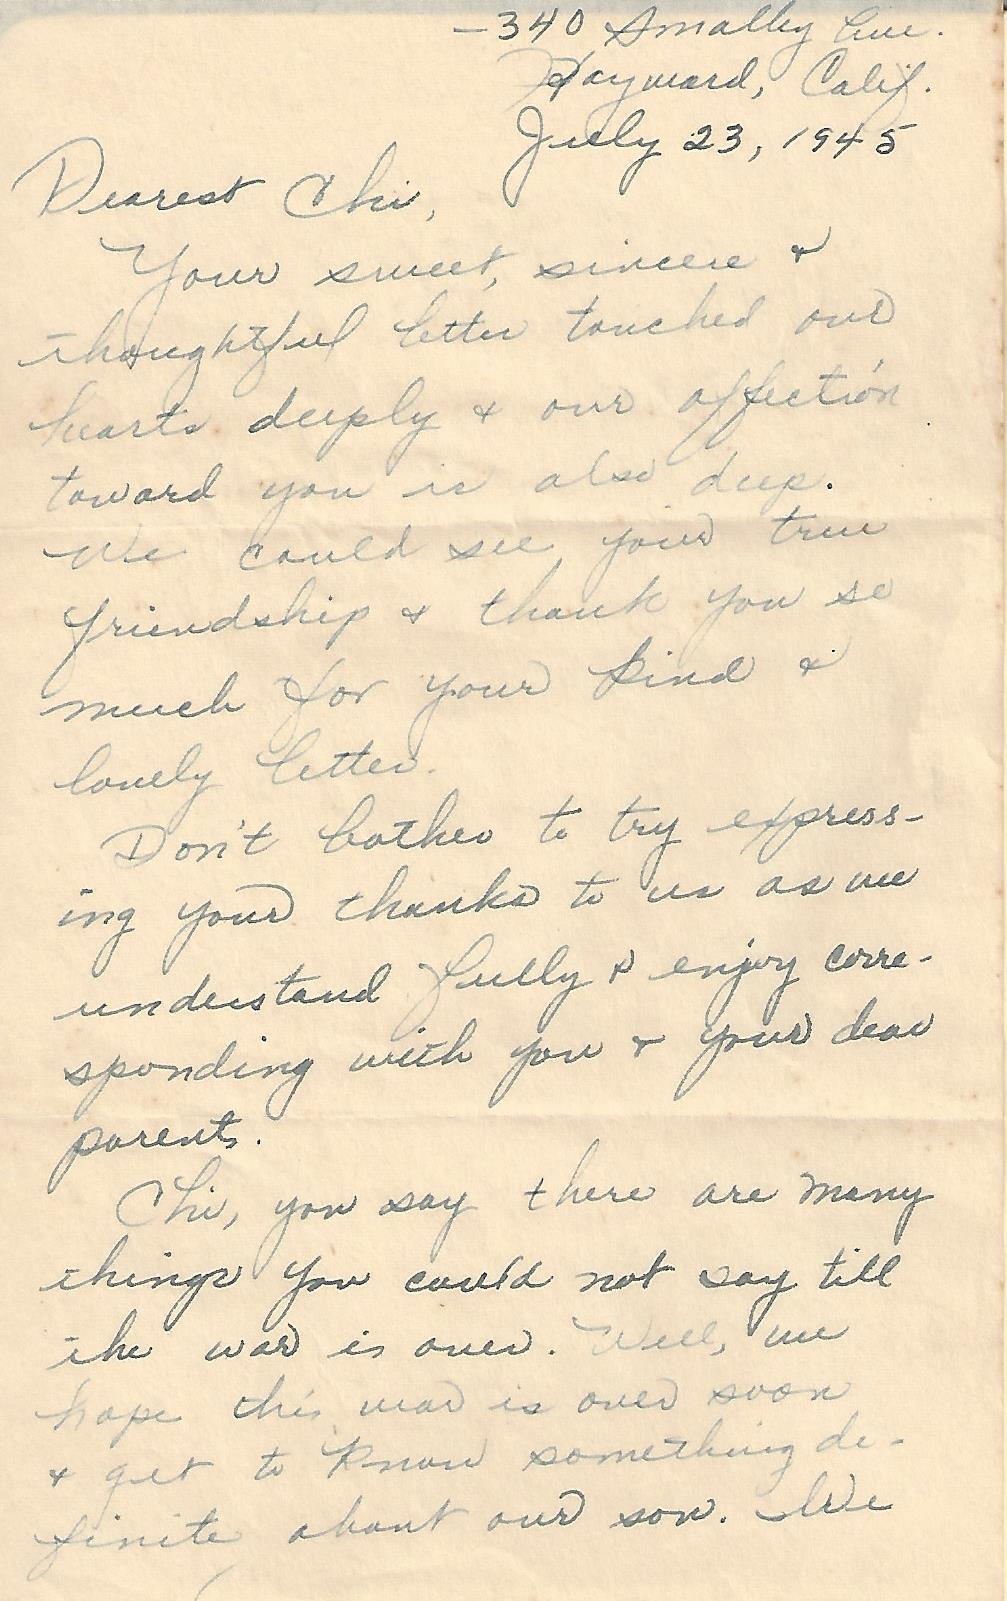 -340 Smalley Ave.
Hayward, Calif.
July 23, 1945
Dearest Chi,
Your sweet, sincere &
thoughtful letter touched our
hearts deeply & our affection
toward you is also deep.
We could see your true
friendship & thank you so
much for your kind &
lovely letter.
Don't bother to try express-
ing your thanks to us as we
understand fully & enjoy corre-
sponding with you & your dear
parents.
Chi, you say there are many
things you could not say till
the war is over. Well, we
hope this war is over soon
& get to know something de-
finite about our son. We